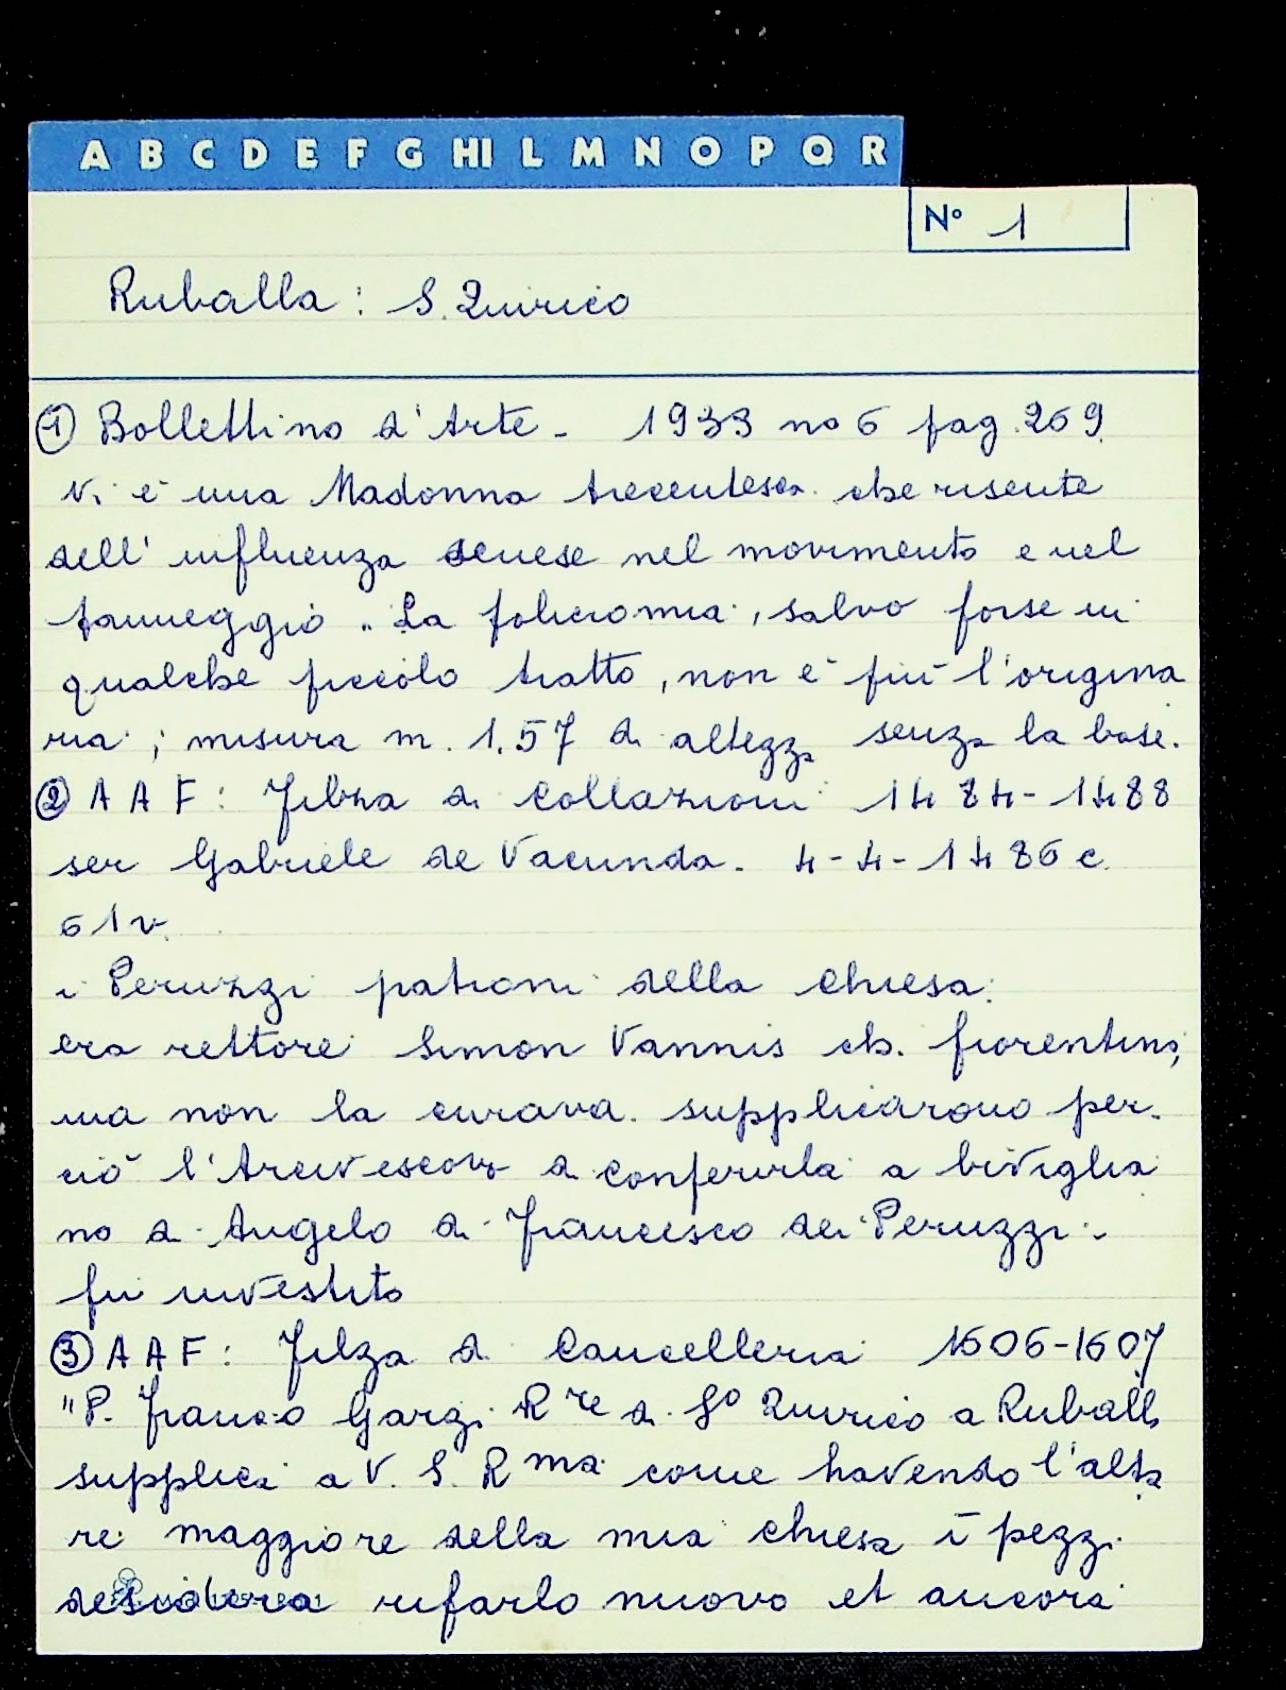 A B C D E F G HI L M N O P Q R
N° 1
Ruballa: S. Quirico
① Bollettino d'Arte - 1933 no 6 pag. 269
Vi è una Madonna trecentesca che risente
dell'influenza senese nel movimento e nel
panneggio. La policromia, salvo forse in
qualche piccolo tratto, non è più l'origina
ria; misura m. 1.57 di altezza senza la base.
② A A F: Filza di Collazioni 1484-1488
ser Gabriele de Vacunda. 4-4-1486 c.
61v.
i Peruzzi patroni della chiesa:
era rettore Simon Vannis ch. fiorentino,
ma non la curava. supplicarono per-
ciò l'Arcivescovo di conferirla a biviglia
no di Angelo di Francesco dei Peruzzi.
fu investito
③ A A F: Filza di Cancelleria 1606-1607
"P. Franco Garzi Rre di So Quirico a Ruballa
supplica a V. S. Rma come havendo l'alta
re maggiore della mia chiesa i pezzi
desidera rifarlo nuovo et ancora